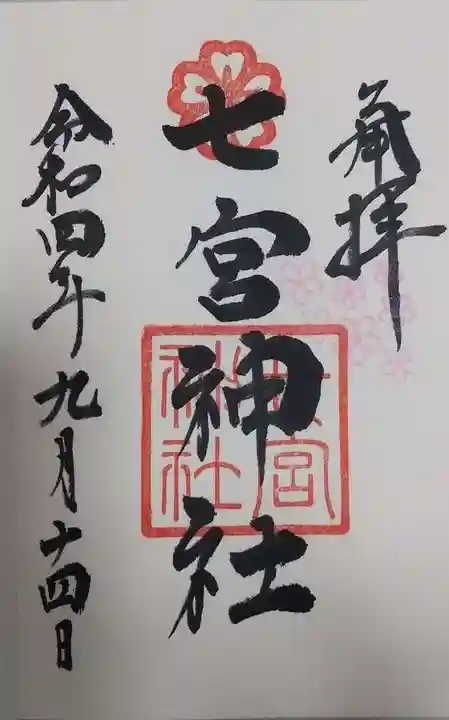 奉拝
七宮神社
七宮神社
令和四年九月十四日